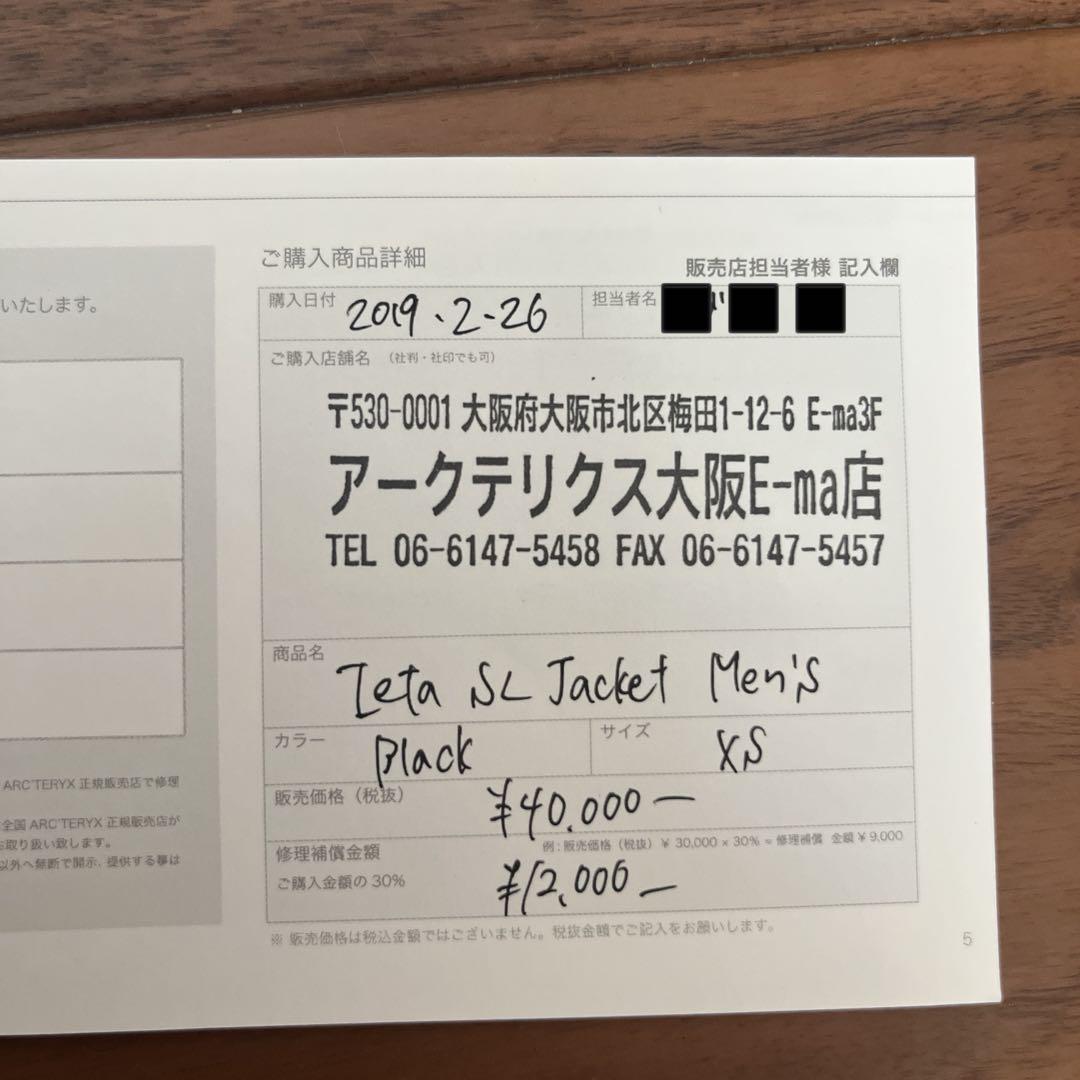 いたします。
ARC'TERYX 正規販売店で修理
全国 ARC'TERYX 正規販売店が
お取り扱い致します。
以外へ無断で開示、提供する事は
ご購入商品詳細
販売店担当者様 記入欄
購入日付 2019.2-26
担当者名
ご購入店舗名 (社判・社印でも可)
〒530-0001 大阪府大阪市北区梅田1-12-6 E-ma3F
アークテリクス大阪E-ma店
TEL 06-6147-5458 FAX 06-6147-5457
商品名 Zeta SL Jacket Men's
カラー Black
サイズ XS
販売価格(税抜) ¥40.000 —
例:販売価格(税抜)¥ 30,000 × 30% = 修理補償 金額 ¥ 9,000
修理補償金額
ご購入金額の 30% ¥12,000 —
※ 販売価格は税込金額ではございません。税抜金額でご記入をお願いします。
5